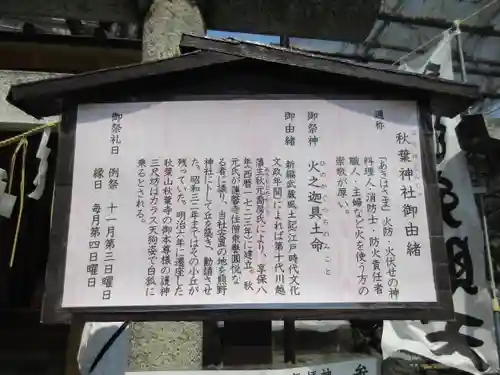 秋葉神社御由緒
通称
「あきはさま」火防・火伏せの神
料理人・消防士・防火責任者
職人・主婦など火を使う方の
崇敬が厚い。
御祭神 火之迦具土命
ひのかぐつちのみこと
御由緒 新編武蔵風土記(江戸時代文化
文政年間)によれば第十代川越
藩主秋元喬房氏により、享保八
年(西暦一七二三年)に建立。秋
元氏が蓮馨寺住僧東譽圓悦な
る者に譲り、当社安置の地を熊野
神社に卜して丘を築き、勧請させ
た。昭和三二年まではその小丘が
残っていた。明治六年に遷座した
秋葉山秋葉寺の御本尊様の護神
三尺坊はカラス天狗姿で白狐に
乗るとされる。
御祭礼日 例祭 十一月第三日曜日
縁日 毎月第四日曜日